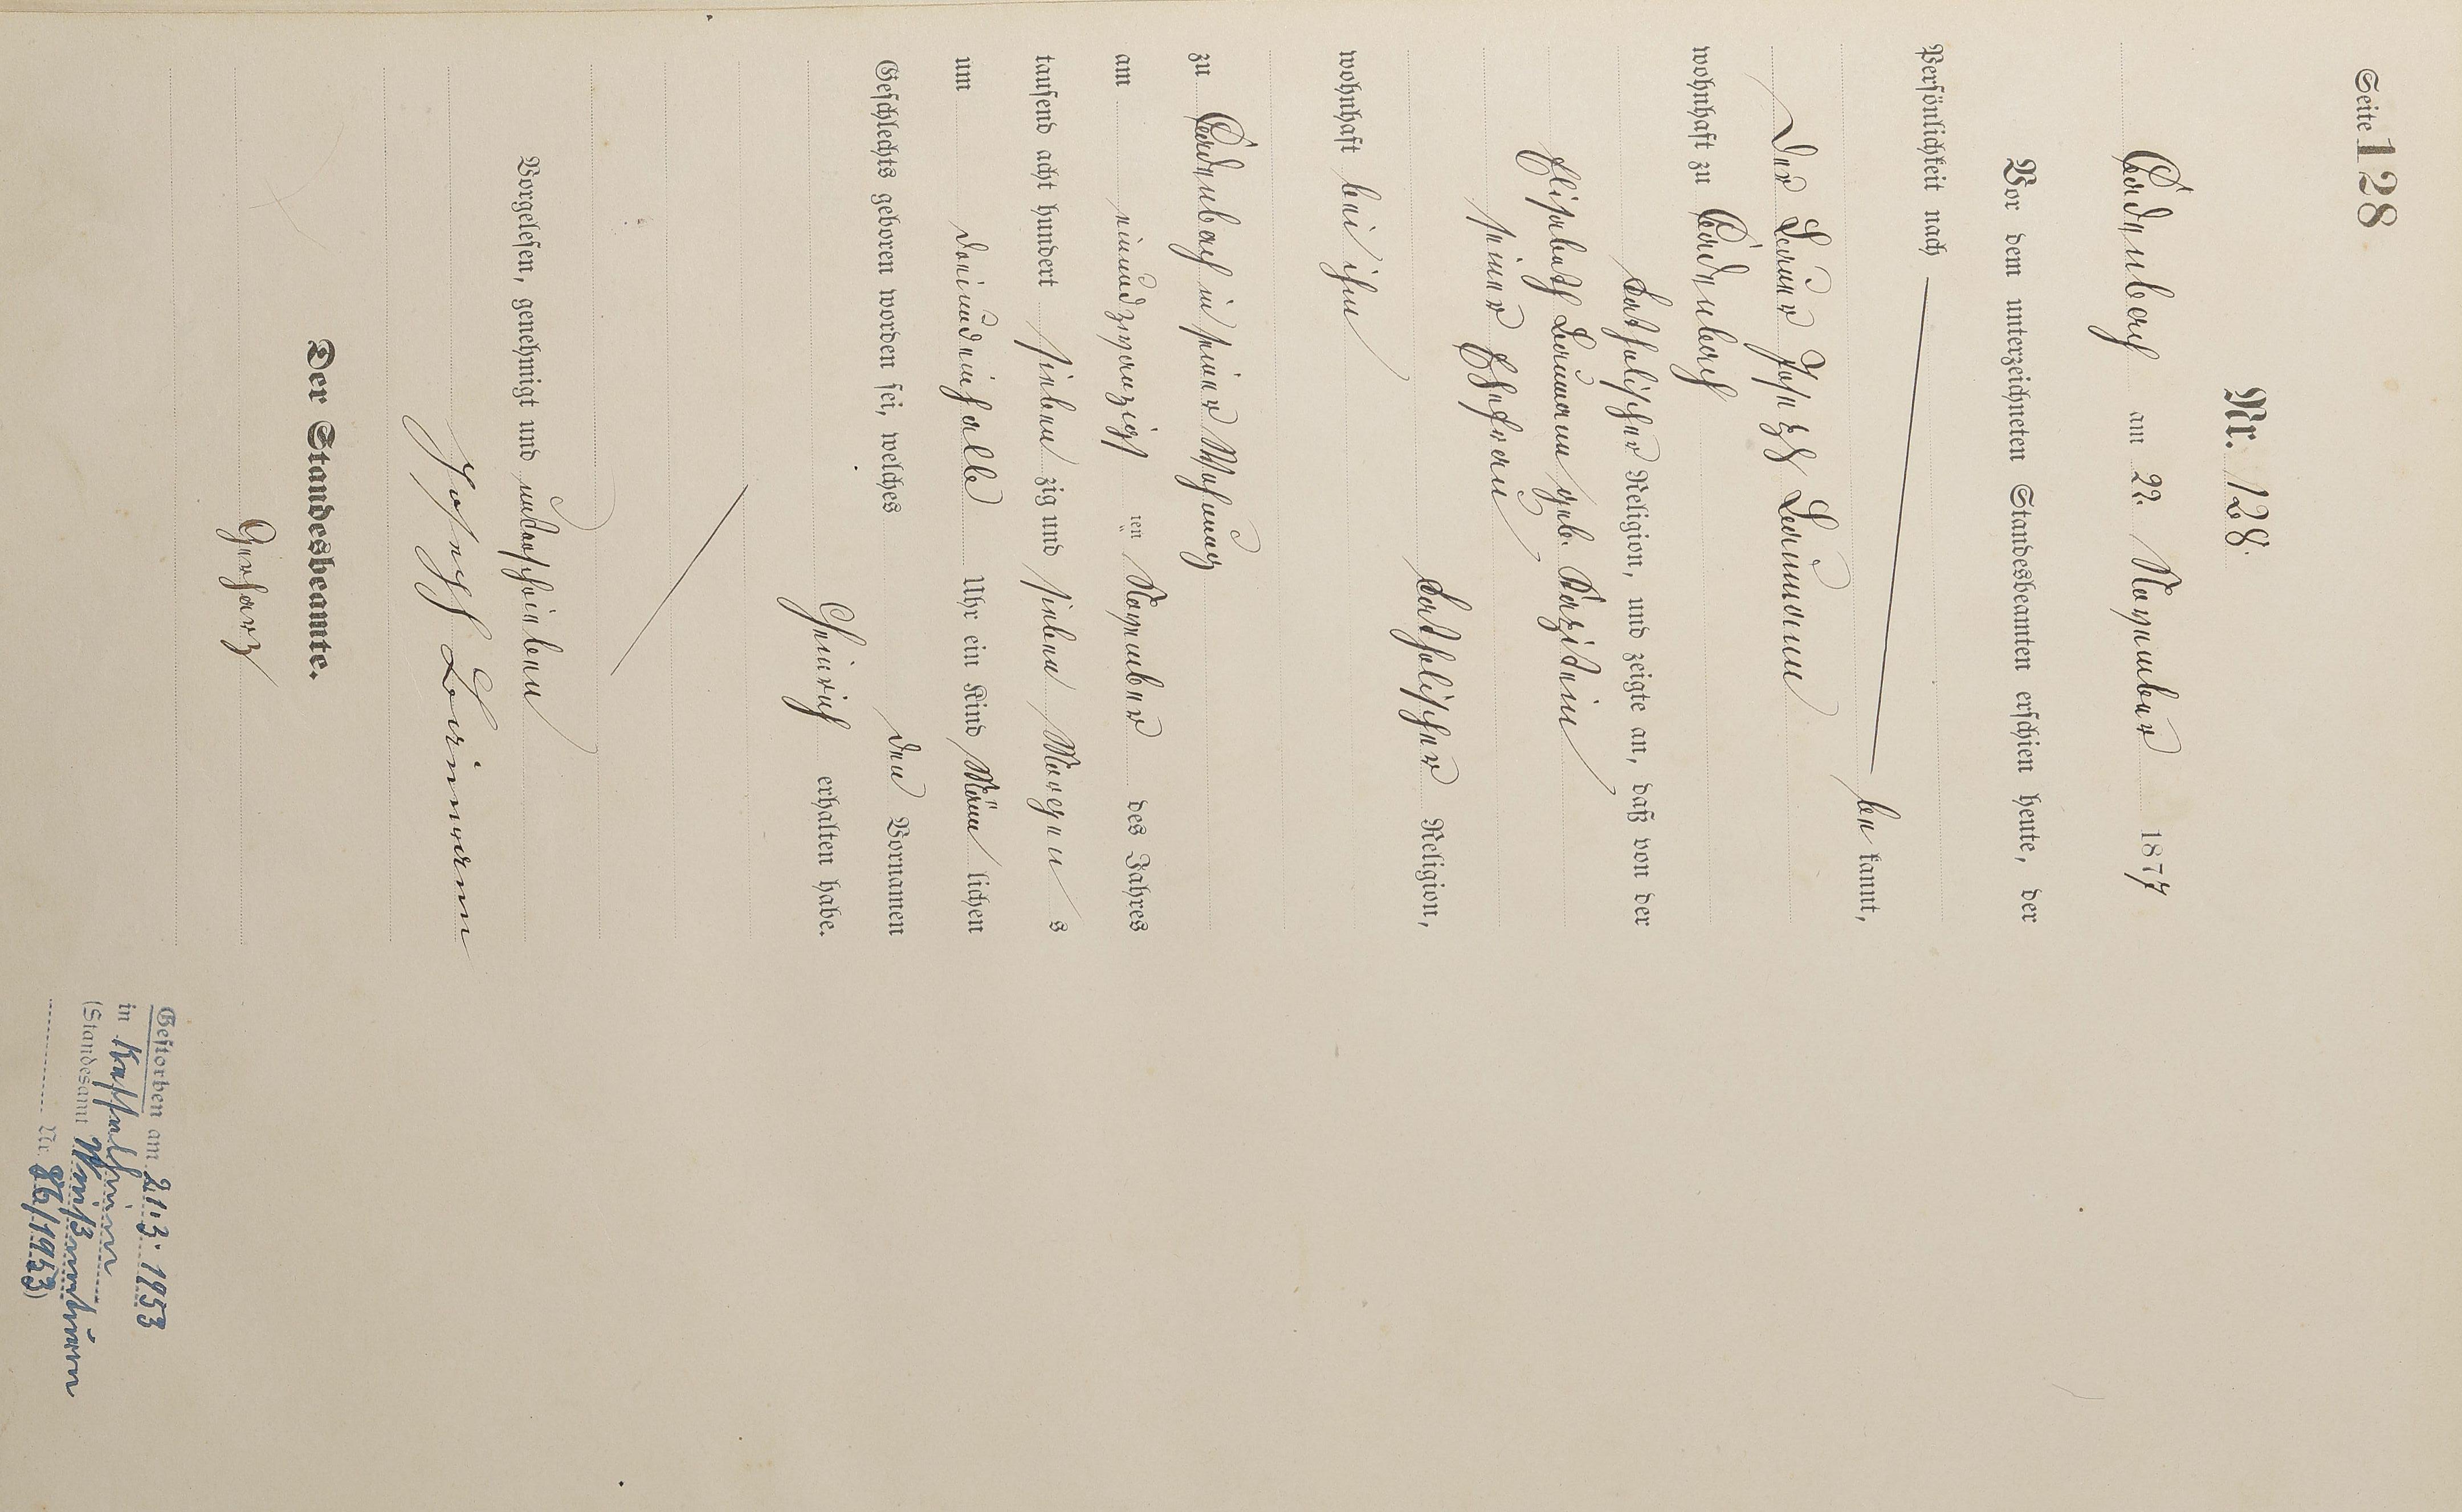 Seite 128
Nr. 128.
Cadenbach am 22. November 1877
Vor dem unterzeichneten Standesbeamten erschien heute, der
Persönlichkeit nach
be kannt,
der Bauer Joseph
wohnhaft zu Cadenbach
katholischer Religion, und zeigte an, daß von der
Elisabeth geb.
seiner Ehefrau
katholischer Religion,
wohnhaft bei ihm
zu Cadenbach in seiner Wohnung
am einundzwanzigsten ten November des Jahres
tausend acht hundert sieben zig und sieben Morgens s
um dreiundeinhalb Uhr ein Kind Männ lichen
Geschlechts geboren worden sei, welches den Vornamen
Heinrich erhalten habe.
Vorgelesen, genehmigt und unterschrieben
Joseph
Der Standesbeamte.
Gerharz
Gestorben am 21.3.1953
in
(Standesamt Weißenthurm
Nr. 86/1953)